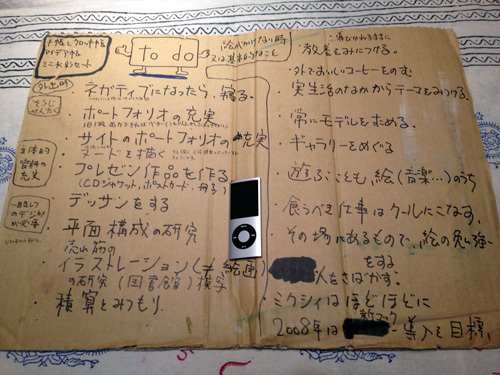 to do
絵がかけない時
又は基本的なこと
外出時
ミニ水彩セット
・ネガティブになったら、寝る。
・ポートフォリオの充実
・サイトのポートフォリオの充実
・ヌードを描く
・プレゼン作品を作る
(CDジャケット、ポストカード、冊子)
・デッサンをする
・平面構成の研究
・イラストレーション(≠絵画)
の研究(図書館)模写
・積算とみつもり
主体的
資料の
充実
・教養をみにつける。
・外でおいしいコーヒーをのむ
・実生活のなかからテーマをみつける。
・常にモデルを求める。
・ギャラリーをめぐる
・遊ぶことも絵(音楽…)のうち
・食うべき仕事はクールにこなす。
・その場にあるもので、絵の勉強
をする
人をさがす。
・ミクシィはほどほどに
2008年は
導入を目標。